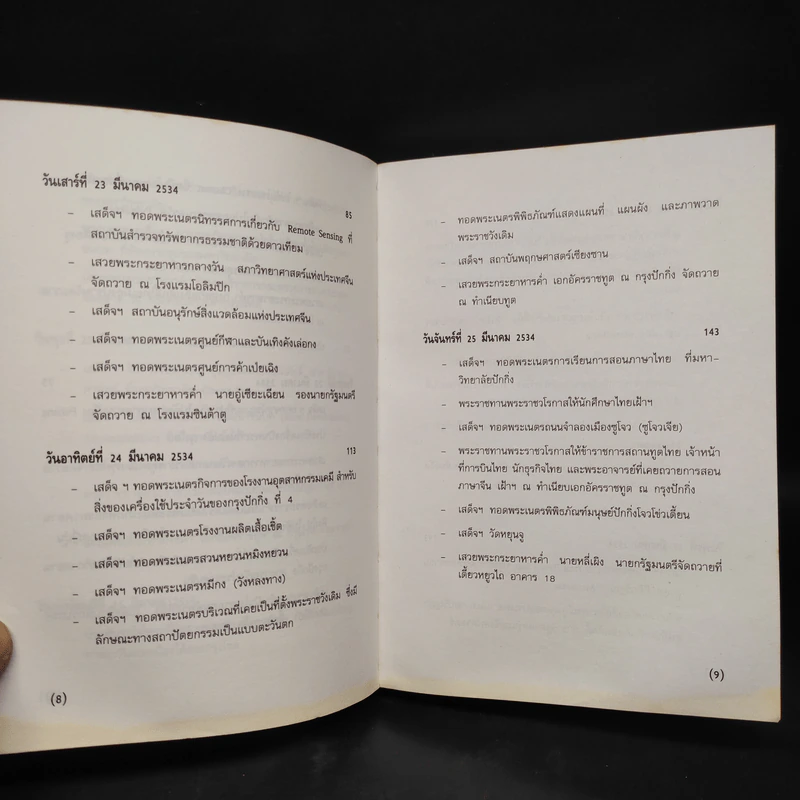 วันเสาร์ที่ 23 มีนาคม 2534
85
- เสด็จฯ ทอดพระเนตรนิทรรศการเกี่ยวกับ Remote Sensing ที่
สถาบันสำรวจทรัพยากรธรรมชาติด้วยดาวเทียม
- เสวยพระกระยาหารกลางวัน สภาวิทยาศาสตร์แห่งประเทศจีน
จัดถวาย ณ โรงแรมโอลิมปิก
- เสด็จฯ สถาบันอนุรักษ์สิ่งแวดล้อมแห่งประเทศจีน
- เสด็จฯ ทอดพระเนตรศูนย์กีฬาและบันเทิงคังเล่อกง
- เสด็จฯ ทอดพระเนตรศูนย์การค้าเป่ยเฉิง
- เสวยพระกระยาหารค่ำ นายอู๋เซียะเฉียน รองนายกรัฐมนตรี
จัดถวาย ณ โรงแรมชินต้าตู
วันอาทิตย์ที่ 24 มีนาคม 2534
113
- เสด็จ ฯ ทอดพระเนตรกิจการของโรงงานอุตสาหกรรมเคมี สำหรับ
สิ่งของเครื่องใช้ประจำวันของกรุงปักกิ่ง ที่ 4
- เสด็จฯ ทอดพระเนตรโรงงานผลิตเสื้อเชิ้ต
- เสด็จฯ ทอดพระเนตรสวนหยวนหมิงหยวน
- เสด็จฯ ทอดพระเนตรหมีกง (วังหลงทาง)
- เสด็จฯ ทอดพระเนตรบริเวณที่เคยเป็นที่ตั้งพระราชวังเดิม ซึ่งมี
ลักษณะทางสถาปัตยกรรมเป็นแบบตะวันตก
(8)
- ทอดพระเนตรพิพิธภัณฑ์แสดงแผนที่ แผนผัง และภาพวาด
พระราชวังเดิม
- เสด็จฯ สถาบันพฤกษศาสตร์เซียงซาน
- เสวยพระกระยาหารค่ำ เอกอัครราชทูต ณ กรุงปักกิ่ง จัดถวาย
ณ ทำเนียบทูต
วันจันทร์ที่ 25 มีนาคม 2534
143
- เสด็จฯ ทอดพระเนตรการเรียนการสอนภาษาไทย ที่มหา-
วิทยาลัยปักกิ่ง
- พระราชทานพระราชวโรกาสให้นักศึกษาไทยเฝ้าฯ
- เสด็จฯ ทอดพระเนตรถนนจำลองเมืองซูโจว (ซูโจวเจีย)
- พระราชทานพระราชวโรกาสให้ข้าราชการสถานทูตไทย เจ้าหน้า
ที่การบินไทย นักธุรกิจไทย และพระอาจารย์ที่เคยถวายการสอน
ภาษาจีน เฝ้าฯ ณ ทำเนียบเอกอัครราชทูต ณ กรุงปักกิ่ง
- เสด็จฯ ทอดพระเนตรพิพิธภัณฑ์มนุษย์ปักกิ่งโจวโข่วเตี้ยน
- เสด็จฯ วัดหยุนจู
- เสวยพระกระยาหารค่ำ นายหลี่เผิง นายกรัฐมนตรีจัดถวายที่
เตี้ยวหยูวไถ อาคาร 18
(9)